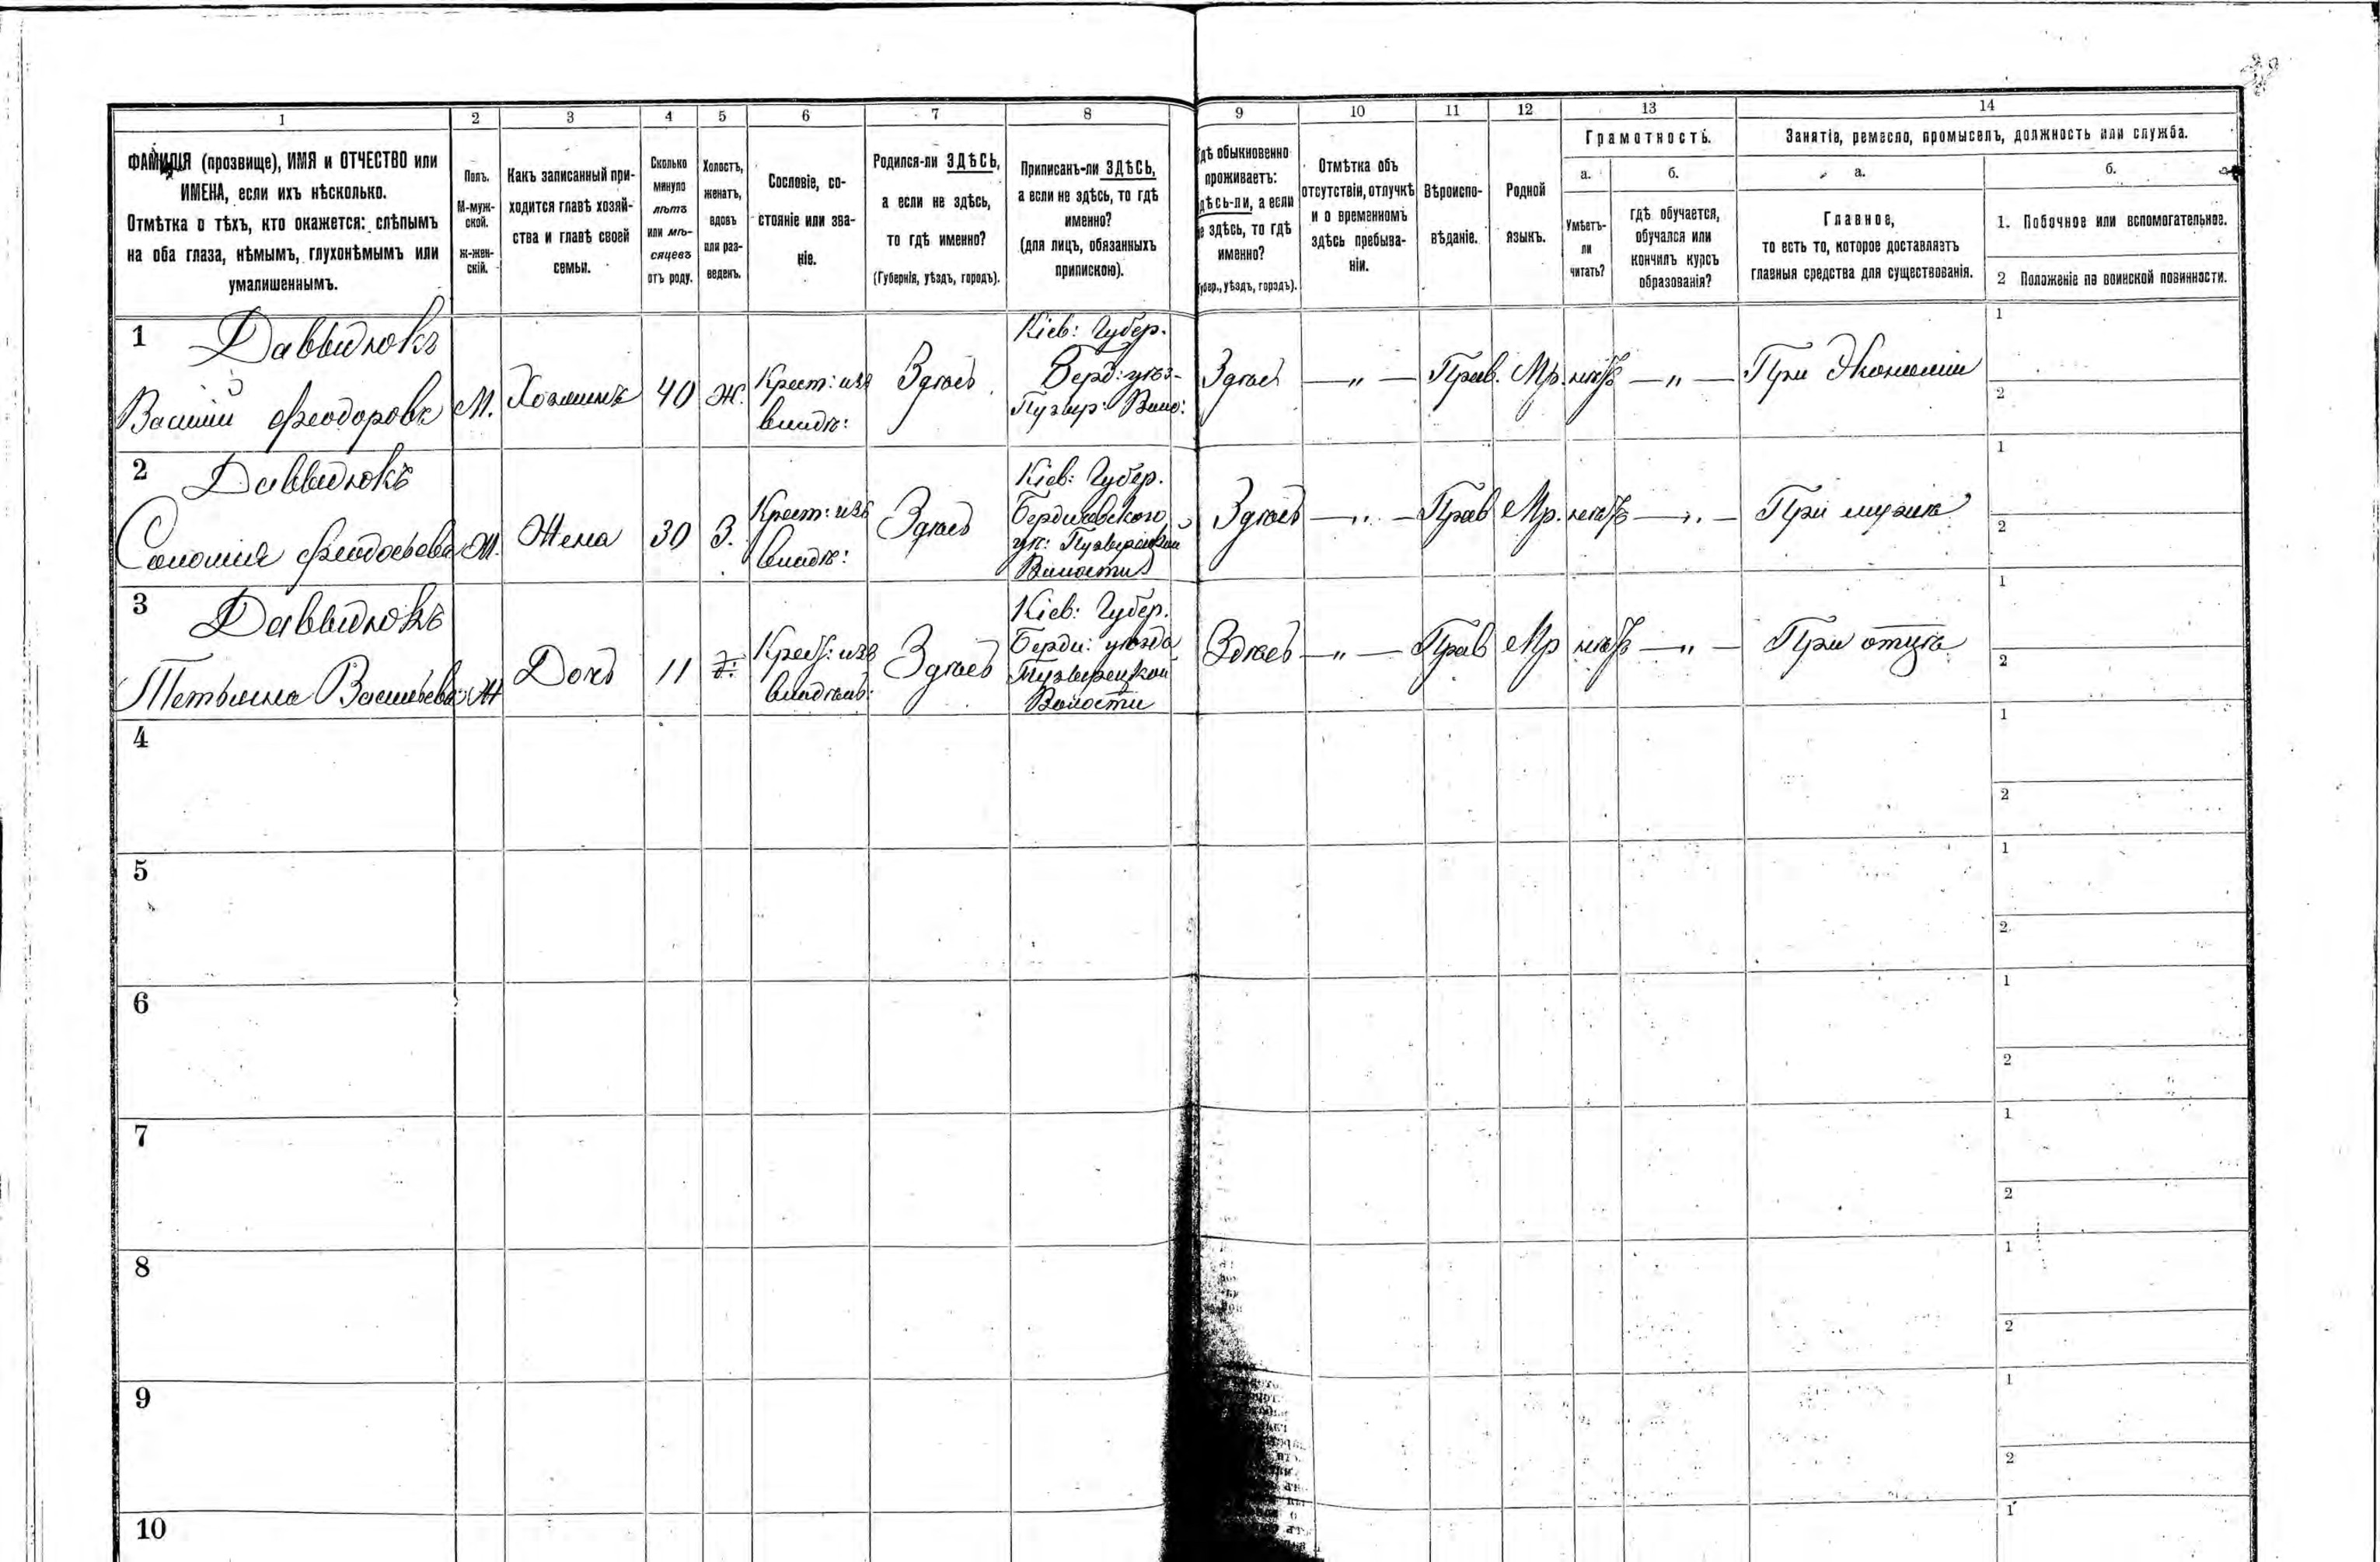 1 2 3 4 5 6 7 8 9 10 11 12 13 14
ФАМИЛІЯ (прозвище), ИМЯ и ОТЧЕСТВО или
ИМЕНА, если ихъ нѣсколько.
Отмѣтка о тѣхъ, кто окажется: слѣпымъ
на оба глаза, нѣмымъ, глухонѣмымъ или
умалишеннымъ.
Полъ.
М-муж-
ской.
Ж-жен-
скій.
Какъ записанный при-
ходится главѣ хозяй-
ства и главѣ своей
семьи.
Сколько
минуло
лѣтъ
или мѣ-
сяцевъ
отъ роду.
Холостъ,
женатъ,
вдовъ
или раз-
веденъ.
Сословіе, со-
стояніе или зва-
ніе.
Родился-ли ЗДѢСЬ,
а если не здѣсь,
то гдѣ именно?
(Губернія, уѣздъ, городъ).
Приписанъ-ли ЗДѢСЬ,
а если не здѣсь, то гдѣ
именно?
(для лицъ, обязанныхъ
припискою).
гдѣ обыкновенно
проживаетъ:
здѣсь-ли, а если
не здѣсь, то гдѣ
именно?
(Губер., уѣздъ, городъ).
Отмѣтка объ
отсутствіи, отлучкѣ
и о временномъ
здѣсь пребыва-
ніи.
Вѣроиспо-
вѣданіе.
Родной
языкъ.
Грамотность.
а.
Умѣетъ-
ли
читать?
б.
гдѣ обучается,
обучался или
кончилъ курсъ
образованія?
Занятія, ремесло, промыселъ, должность или служба.
а.
Главное,
то есть то, которое доставляэтъ
главныя средства для существованія.
б.
1. Побочное или вспомогательное.
2 Положеніе по воинской повинности.
1 Даввидюкъ
Василій Феодоровъ
М.
Хозяинъ
40
Ж.
Крест: изъ
владѣ:
Здѣсь
Кіев: Губер.
Берд: уѣз-
Пузыр: Воло:
Здѣсь
— „ —
Прав.
Мр.
нѣтъ
— „ —
При Экономіи
1
2
2 Даввидюкъ
Соломія Феодосьева
Ж.
Жена
30
З.
Крест: изъ
владѣ:
Здѣсь
Кіев: Губер.
Бердичевского
уѣ: Пузырецкой
Волости
Здѣсь
— „ —
Прав
Мр.
нѣтъ
— „ —
При мужѣ
1
2
3 Даввидюкъ
Тетьяна Васильева
Ж
Дочь
11
Крест: изъ
Здѣсь
Кіев: Губер.
Берди: уѣзда
Пузырецкой
Волости
Здѣсь
— „ —
Прав
Мр
нѣтъ
— „ —
При отцѣ
1
2
4
1
2
5
1
2
6
1
2
7
1
2
8
1
2
9
1
2
10
1